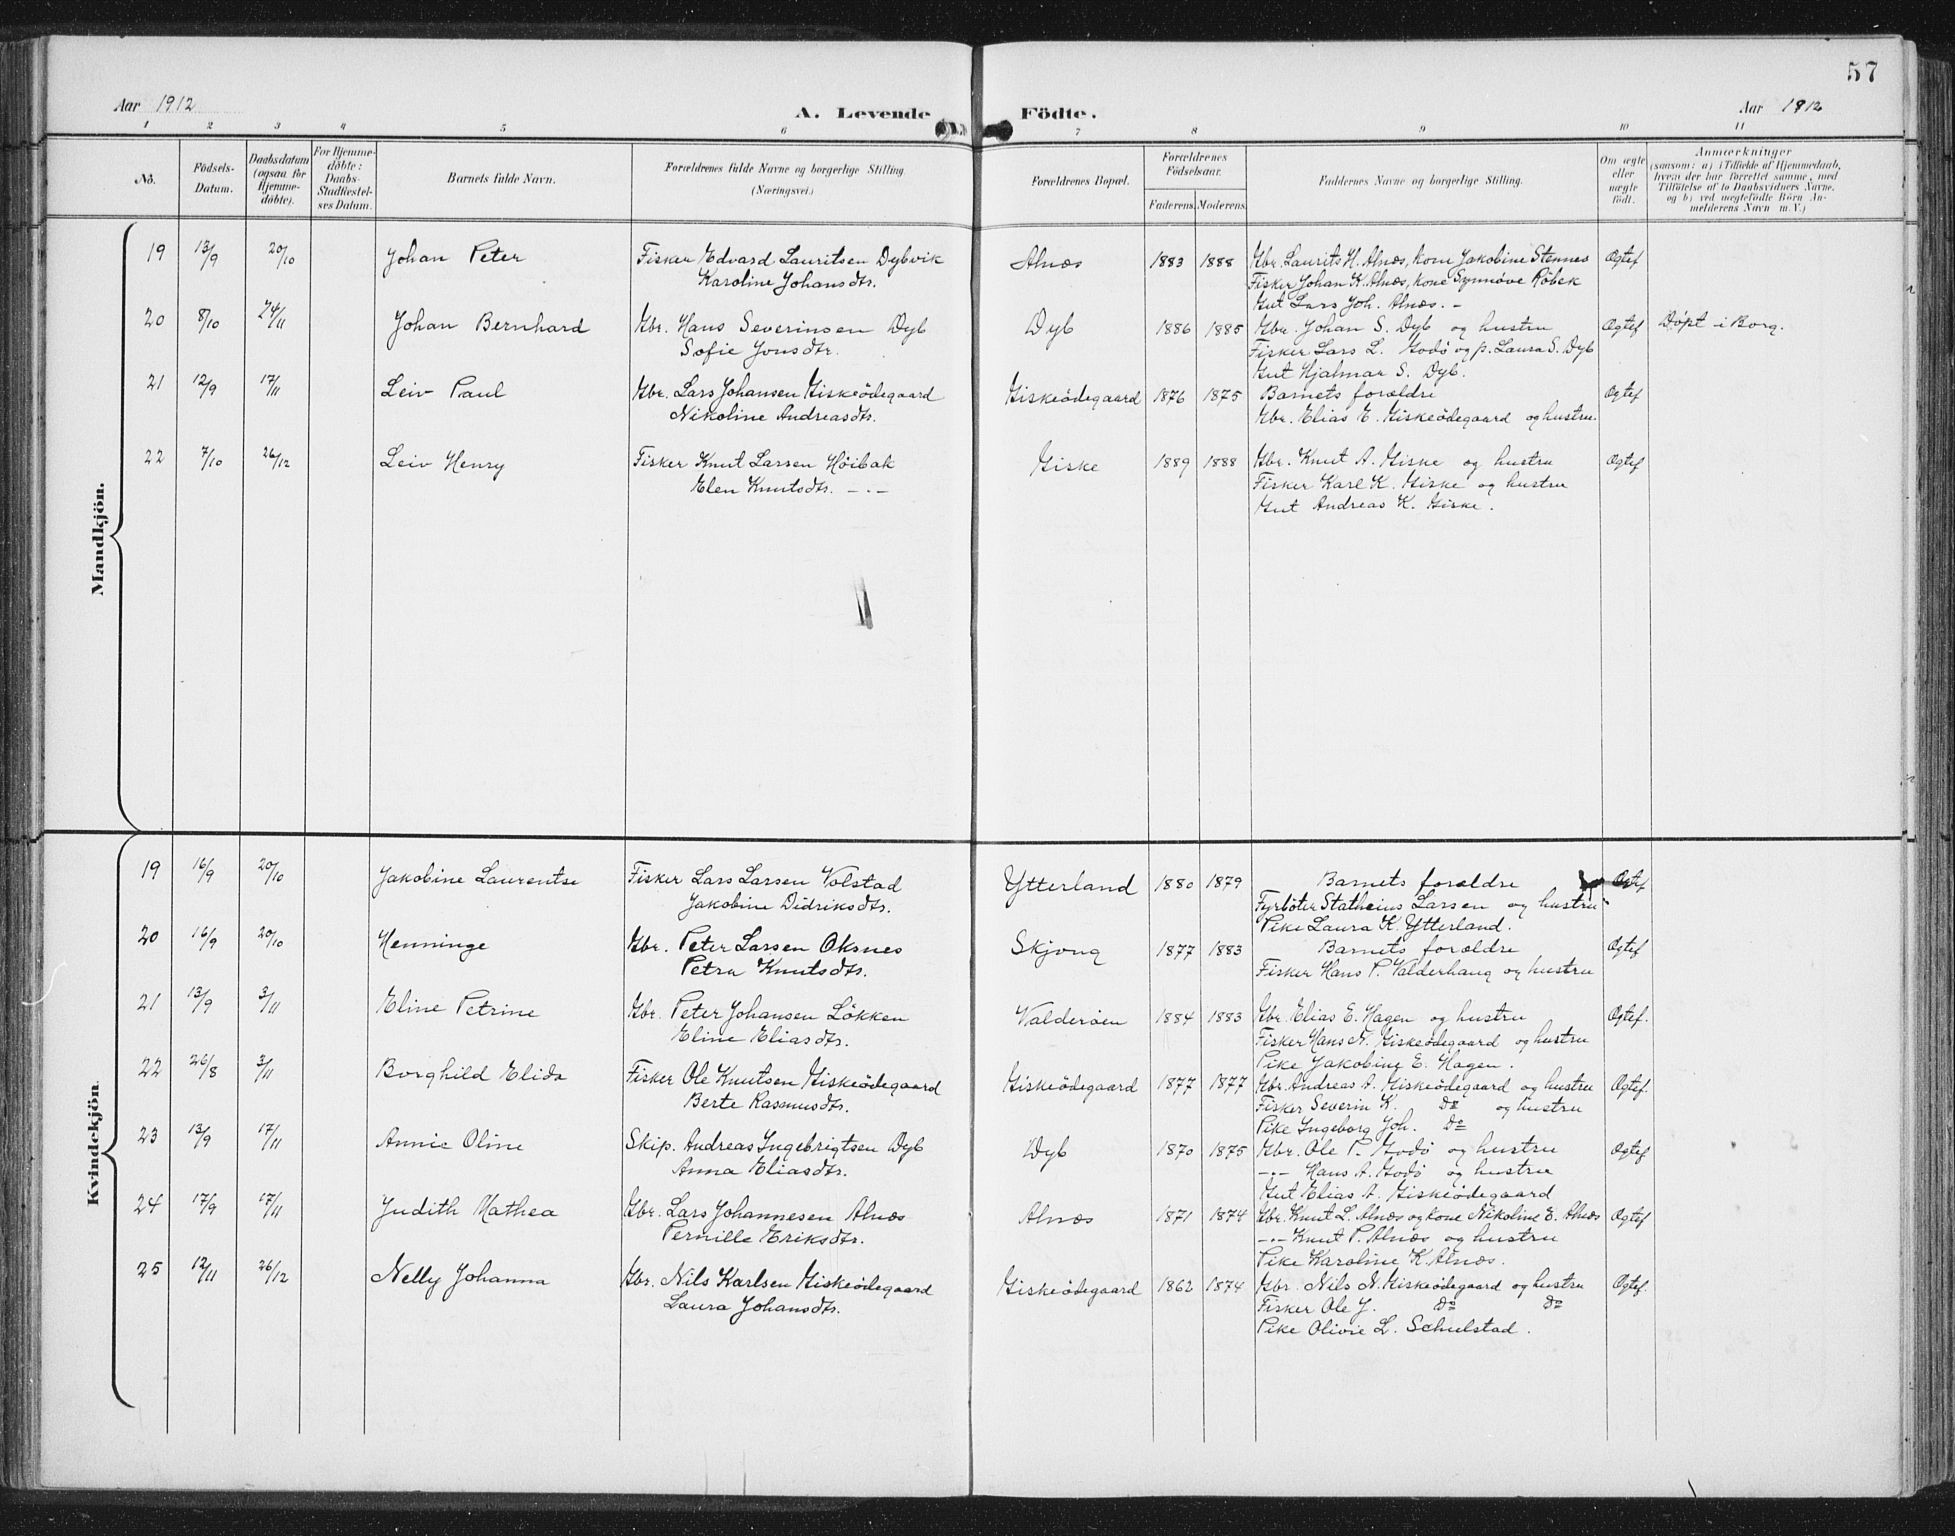 57
Aar 1912
A. Levende Födte.
Aar 1912
1 2 3 4 5 6 7 8 9 10 11
No.
Födsels-
Datum.
Daabsdatum
(ogsaa for
Hjemme-
döbte).
For Hjemme-
döbte:
Daabs-
Stadfestel-
ses Datum.
Barnets fulde Navn.
Forældrenes fulde Navne og borgerlige Stilling.
(Næringsvei.)
Forældrenes Bopæl.
Forældrenes
Födselsaar.
Faderens. Moderens.
Faddernes Navne og borgerlige Stilling.
Om ægte
eller
uægte
födt.
Anmærkninger
(saasom: a) i Tilfælde af Hjemmedaab,
hvem der har forrettet samme, med
Tilföielse af to Daabsvidners Navne,
og b) ved uægtefödte Börn An-
melderens Navn m. V.)
Mandkjön.
19 13/9 20/10 Johan Peter Fisker Edvard Lauritsen Dybvik Alnæs 1883 1888 Gbr. Laurits H. Alnæs, kone Jakobine Stennes Ægtef
Karoline Johansdtr. Fisker Johan K. Alnæs, kone Synnøve Röbek
Gut Lars Joh. Alnæs. -
20 8/10 24/11 Johan Bernhard Gbr. Hans Severinsen Dyb Dyb 1886 1885 Gbr. Johan S. Dyb og hustru Ægtef Døpt i Borg.
Sofie Jonsdtr. Fisker Lars L. Godø og p. Laura S. Dyb
Gut Hjalmar S. Dyb.
21 12/9 17/11 Leiv Paul Gbr. Lars Johansen Giskeödegaard Giskeödegaard 1876 1875 Barnets forældre Ægtef
Nikoline Andreasdtr. Gbr. Elias E. Giskeödegaard og hustru.
22 7/10 26/12 Leiv Henry Fisker Knut Larsen Höibak Giske 1889 1888 Gbr. Knut A. Giske og hustru Ægtef
Elen Knutsdtr. -·- Fisker Karl K. Giske og hustru
Gut Andreas K. Giske.
Kvindekjön.
19 16/9 20/10 Jakobine Laurentse Fisker Lars Larsen Volstad Ytterland 1880 1879 Barnets forældre Ægtef
Jakobine Didriksdtr. Fyrböter Statheius Larsen og hustru
Pike Laura K. Ytterland.
20 16/9 20/10 Henninge Gbr. Peter Larsen Oksnes Skjong 1877 1883 Barnets forældre Ægtef
Petra Knutsdtr. Fisker Hans P. Valderhaug og hustru
21 13/9 3/11 Eline Petrine Gbr. Peter Johansen Lökken Valderöen 1884 1883 Gbr. Elias E. Hagen og hustru Ægtef.
Eline Eliasdtr. Fisker Hans N. Giskeödegaard og hustru
Pike Jakobine E. Hagen.
22 26/8 3/11 Borghild Elida Fisker Ole Knutsen Giskeödegaard Giskeödegaard 1877 1877 Gbr. Andreas A. Giskeödegaard og hustru Ægtef.
Berte Rasmusdtr. Fisker Severin K. Do og hustru
Pike Ingeborg Joh. Do
23 13/9 17/11 Annie Oline Skip. Andreas Ingebrigtsen Dyb Dyb 1870 1875 Gbr. Ole P. Godø og hustru Ægtef
Anna Eliasdtr. -·- Hans A. Godø og hustru
Gut Elias A. Giskeödegaard
24 17/9 17/11 Judith Mathea Gbr. Lars Johannesen Alnæs Alnæs 1871 1874 Gbr. Knut L. Alnæs og kone Nikoline E. Alnæs Ægtef
Pernille Eriksdtr. -·- Knut P. Alnæs og hustru
Pike Karoline K. Alnæs.
25 12/11 26/12 Nelly Johanna Gbr. Nils Karlsen Giskeödegaard Giskeödegaard 1862 1874 Gbr. Nils N. Giskeödegaard og hustru Ægtef.
Laura Johansdtr. Fisker Ole J. Do Do
Pike Olivie L. Schulstad.